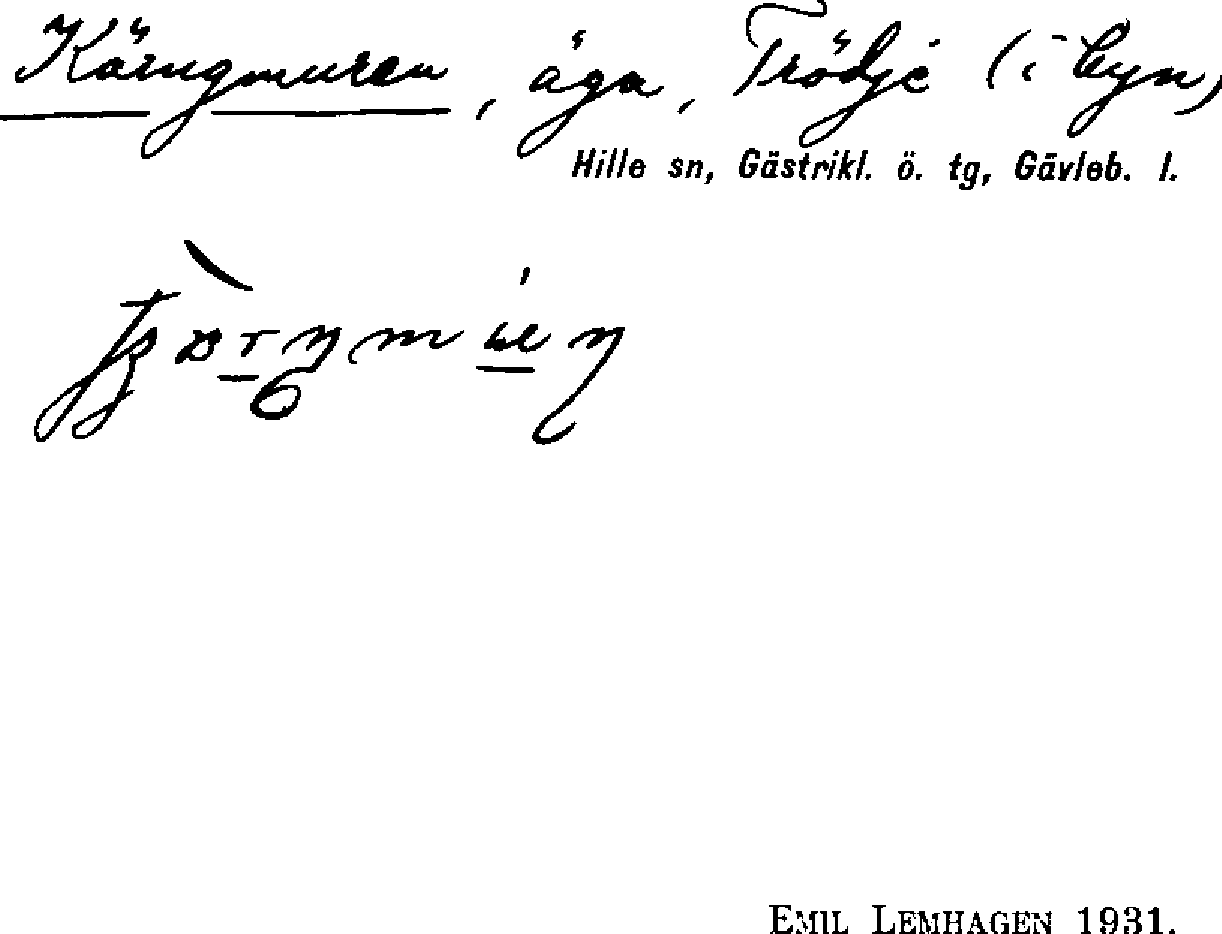 Kärngmuren, äga, Trödje (i byn)
Hille sn, Gästrikl. ö. tg, Gävleb. l.
EMIL LEMHAGEN 1931.